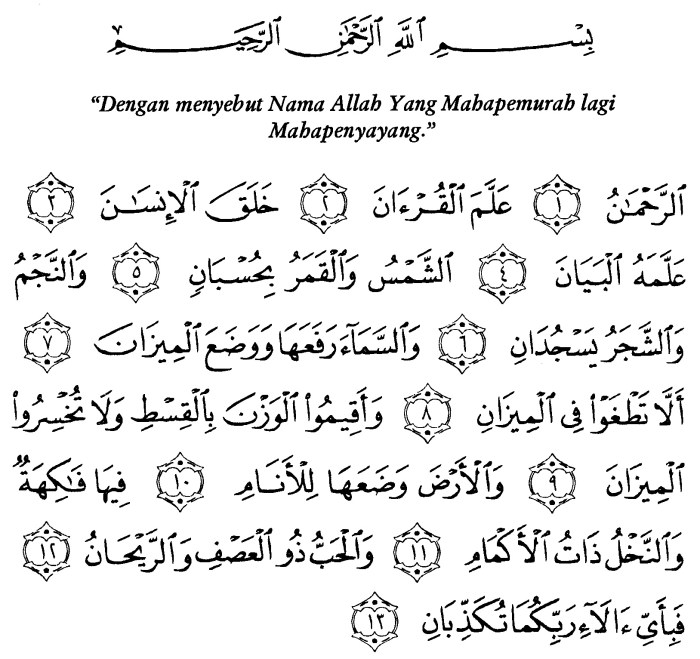 بِسْمِ ٱللَّهِ ٱلرَّحْمَٰنِ ٱلرَّحِيمِ
“Dengan menyebut Nama Allah Yang Mahapemurah lagi
Mahapenyayang.”
ٱلرَّحْمَٰنُ ١ عَلَّمَ ٱلْقُرْءَانَ ٢ خَلَقَ ٱلْإِنسَٰنَ ٣
عَلَّمَهُ ٱلْبَيَانَ ٤ ٱلشَّمْسُ وَٱلْقَمَرُ بِحُسْبَانٍ ٥ وَٱلنَّجْمُ
وَٱلشَّجَرُ يَسْجُدَانِ ٦ وَٱلسَّمَآءَ رَفَعَهَا وَوَضَعَ ٱلْمِيزَانَ ٧
أَلَّا تَطْغَوْا۟ فِى ٱلْمِيزَانِ ٨ وَأَقِيمُوا۟ ٱلْوَزْنَ بِٱلْقِسْطِ وَلَا تُخْسِرُوا۟
ٱلْمِيزَانَ ٩ وَٱلْأَرْضَ وَضَعَهَا لِلْأَنَامِ ١٠ فِيهَا فَٰكِهَةٌ
وَٱلنَّخْلُ ذَاتُ ٱلْأَكْمَامِ ١١ وَٱلْحَبُّ ذُو ٱلْعَصْفِ وَٱلرَّيْحَانُ ١٢
فَبِأَىِّ ءَالَآءِ رَبِّكُمَا تُكَذِّبَانِ ١٣